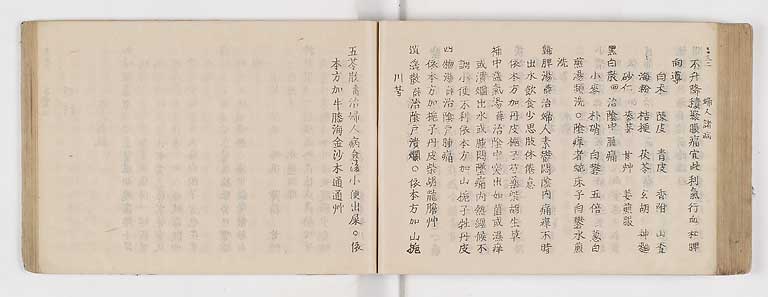 婦人諸病
不升降積聚腹痛宜此利氣行血和脾
向導
白朮 陳皮 青皮 香附 山查
海粉 桔梗 茯苓 玄胡 神麯
砂仁 甘艸 姜煎服
黑白散 治陰中腫痛
小麥 朴硝 白礬 五倍 葱白
煎湯頻洗○陰痒者蛇床子白礬水煎
洗
歸脾湯 治婦人素鬱悶陰內痛痒不時
出水飲食少思肢体倦怠
依本方加丹皮梔子芍藥柴胡生草
補中益氣湯 治陰中突出如菌或濕痒
或潰爛出水或腫悶墜痛內熱經候不
調小便不利依本方加山梔子牡丹皮
四物湯 治陰戶腫痛
依本方加梔子丹皮柴胡龍膽艸
逍遙散 治陰戶潰爛○依本方加山梔
川芎
五苓散 治婦人病 小便出屎○依
本方加牛膝海金沙木通通艸